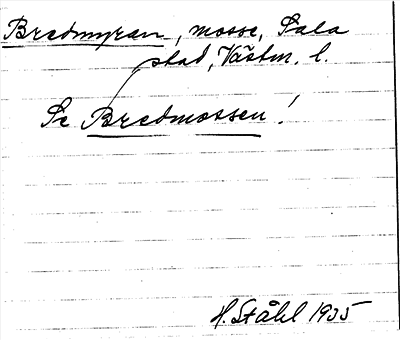 Bredmyran, mosse, Sala
stad, Västm. l.
Se Bredmossen!
H. Ståhl 1935